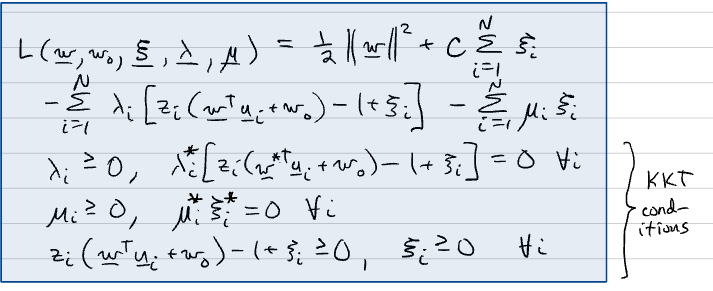 L(w, w₀, ξ, λ, μ) = ½ ‖w‖² + C Σ_{i=1}^{N} ξᵢ
− Σ_{i=1}^{N} λᵢ [zᵢ(wᵀuᵢ + w₀) − 1 + ξᵢ] − Σ_{i=1}^{N} μᵢ ξᵢ
λᵢ ≥ 0, λᵢ* [zᵢ(w*ᵀuᵢ + w₀) − 1 + ξᵢ] = 0 ∀i
μᵢ ≥ 0, μᵢ* ξᵢ* = 0 ∀i
zᵢ(wᵀuᵢ + w₀) − 1 + ξᵢ ≥ 0, ξᵢ ≥ 0 ∀i
KKT
cond-
itions